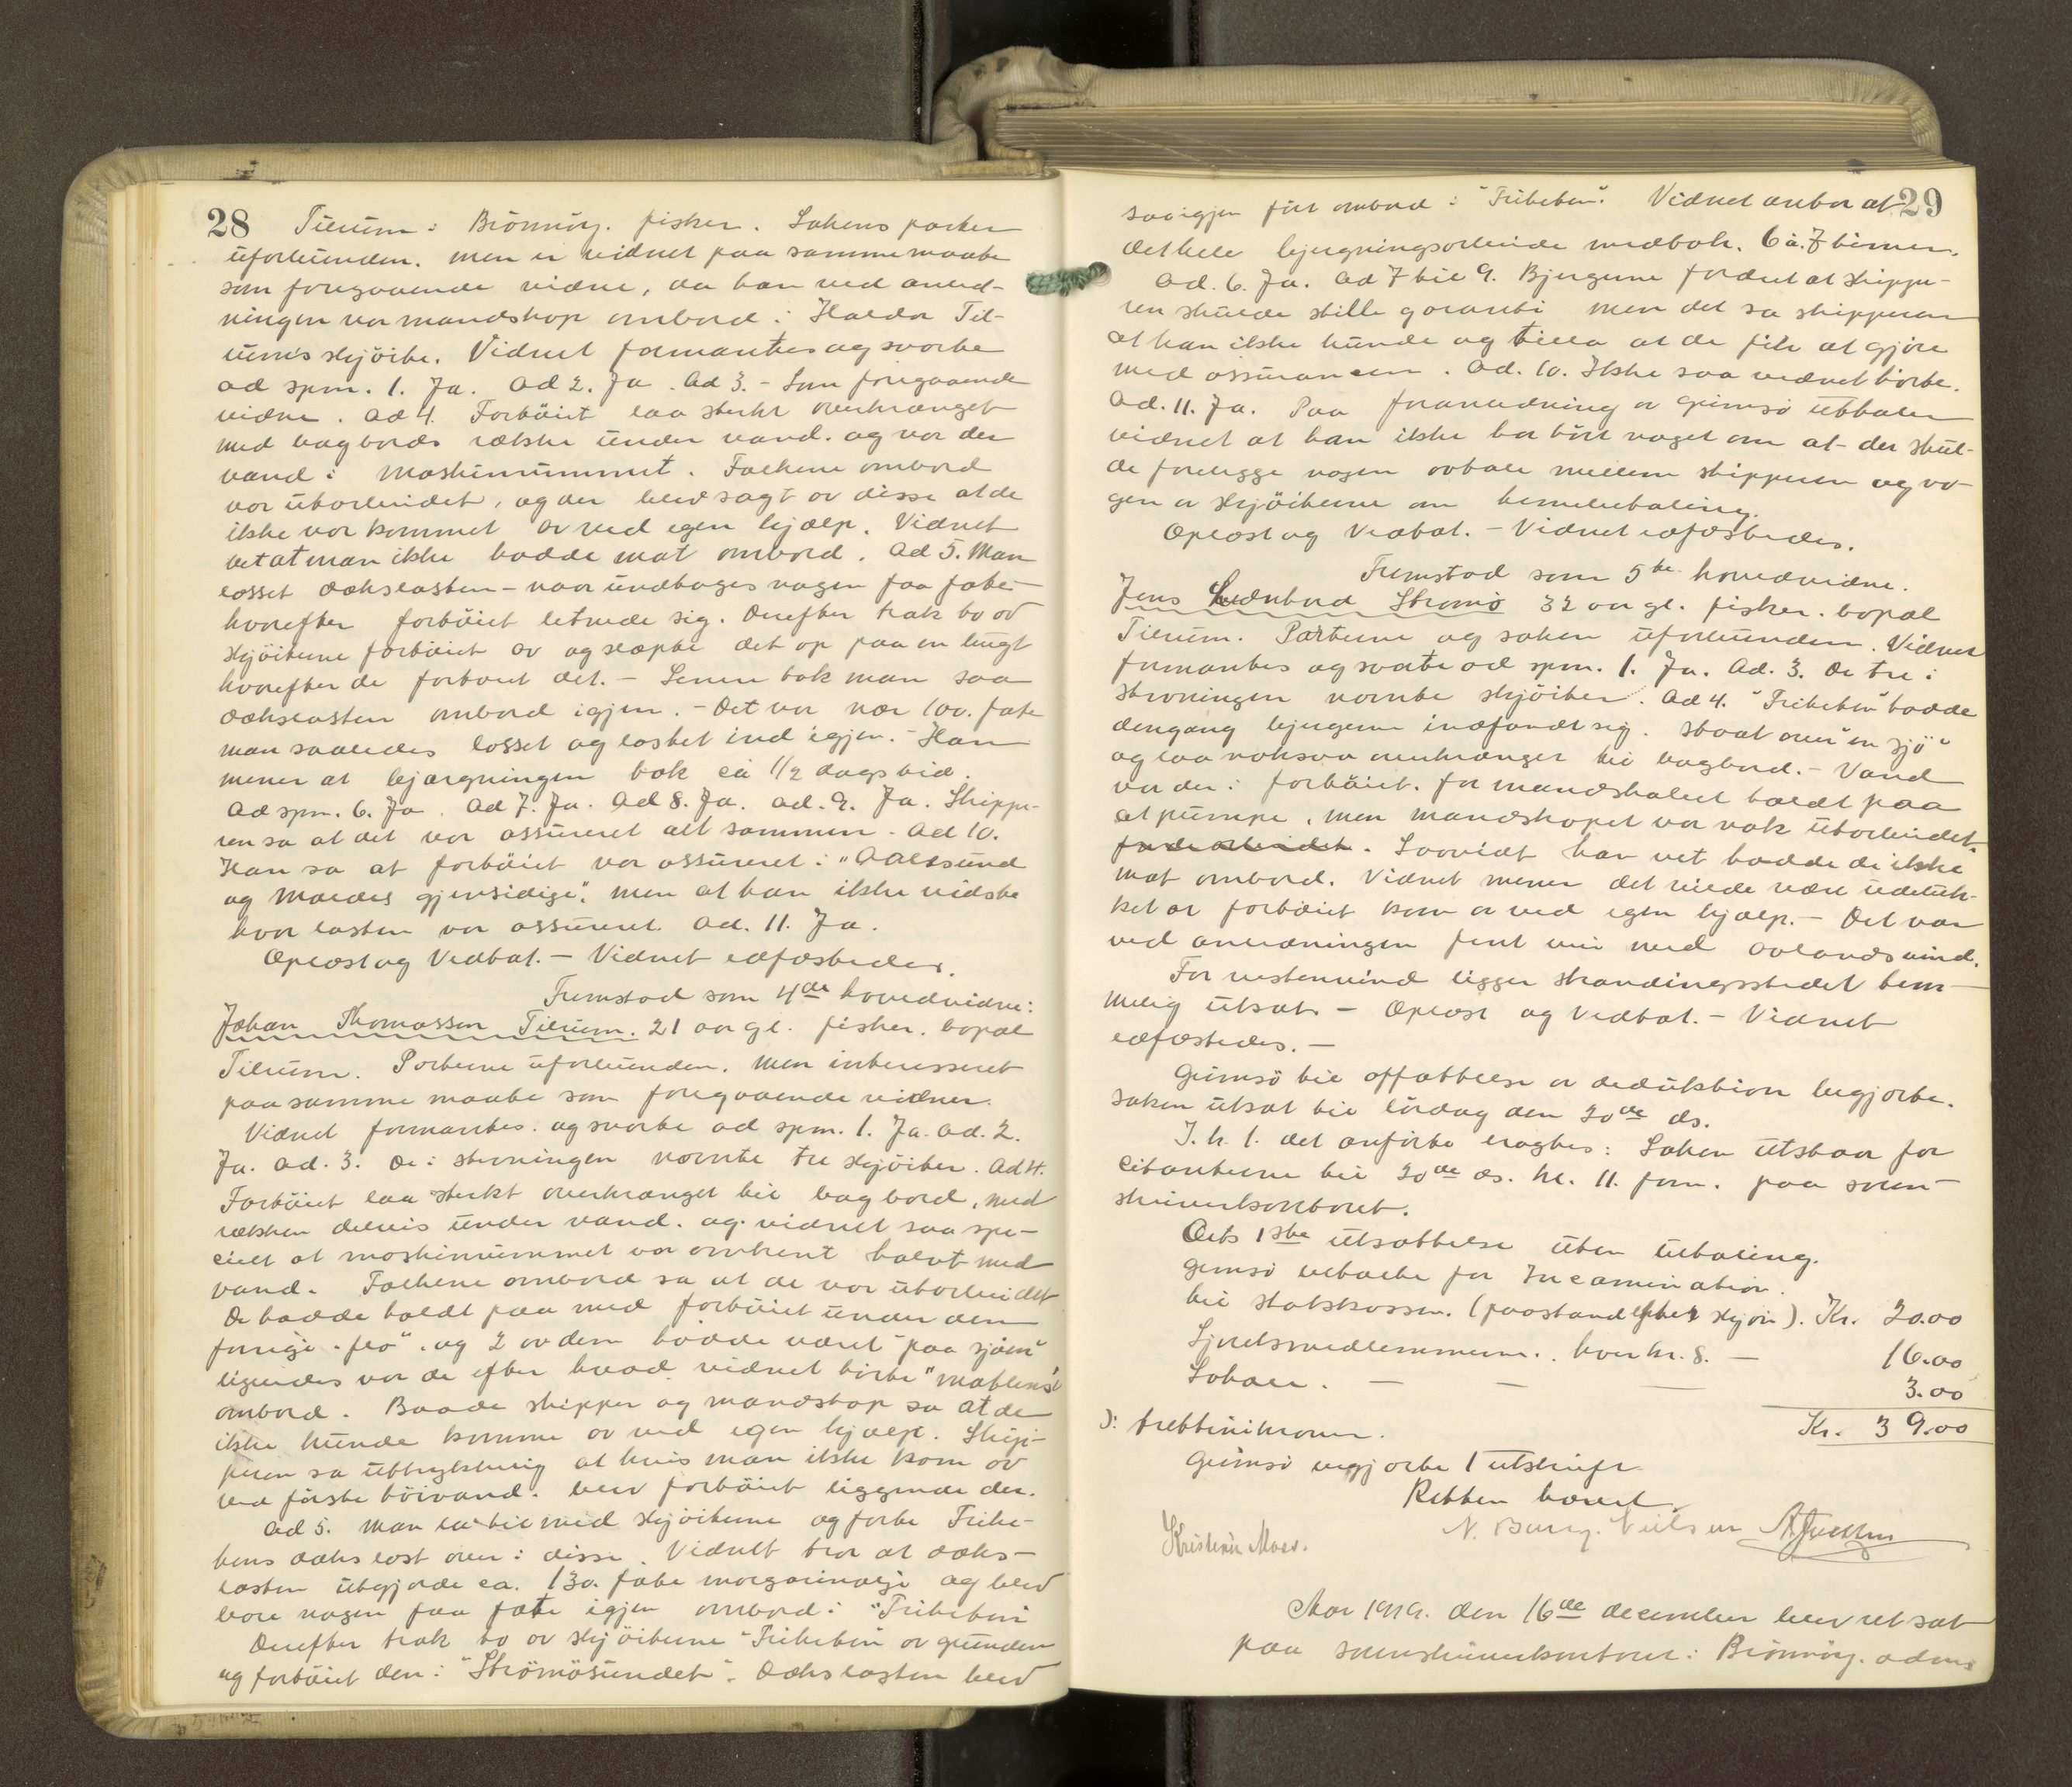 28 Tilrum i Brönnöy. fisker. Sakens parter
uforbunden. men er vidnet paa samme maate
som foregaaende vidne, da han ved anled-
ningen var mandskap ombord i Haldor Til-
rum's skjöite. Vidnet formantes og svarte
ad spm. 1. Ja. ad 2. Ja. Ad 3. - Som foregaaende
vidne. ad 4. Fartöiet laa sterkt overkrænget
med bagbords række under vand. og var der
vand i maskinrummet. Folkene ombord
var utarbeidet, og der blev sagt av disse at de
ikke var kommet av ved egen hjælp. Vidnet
vet at man ikke hadde mat ombord. Ad 5. Man
losset dækslasten - naar undtages nogen faa fate -
hvorefter fartöiet letnede sig. Derefter trak to av
skjöiterne fartöiet av og slæpte det op paa en bugt
hvorefter de fortöiet det. - Senere tok man saa
dækslasten ombord igjen. - Det var nær 100. fate
man saaledes losset og lastet ind igjen. - Han
mener at bjærgningen tok ca 1/2 dags tid.
Ad spm. 6. Ja. Ad 7. Ja. Ad 8. Ja. ad. 9. Ja. Skippe-
ren sa at det var assureret alt sammen. Ad 10.
Han sa at fartöiet var assureret i "Aalesund
og Moldes gjensidige", men at han ikke vidste
hvor lasten var assureret. Ad. 11. Ja.
Oplæst og Vedtat. - Vidnet edfæstedes.
Fremstod som 4de hovedvidne:
Johan Thomassen Tilrum. 21 aar gl. fisker. bopæl
Tilrum. Parterne uforbunden. men interesseret
paa samme maate som foregaaende vidner.
Vidnet formantes. og svarte ad spm. 1. Ja. ad. 2.
Ja. ad. 3. De i stevningen nævnte tre skjöiter. Ad 4.
Fartöiet laa sterkt overkrænget til bagbord, med
rækken delvis under vand. og vidnet saa spe-
cielt at maskinrummet var omtrent halvt med
vand. Folkene ombord sa at de var utarbeidet
De hadde holdt paa med fartöiet under den
forrige "flo". og 2 av dem hadde været "paa sjöen"
ligeledes var de efter hvad vidnet hörte "matlens"
ombord. Baade skipper og mandskap sa at de
ikke kunde komme av ved egen hjælp. Skip-
peren sa uttrykkelig at hvis man ikke kom av
ved förste höivand. blev fartöiet liggende der.
Ad 5. Man la til med skjöiterne og förte Frihe-
tens dækslast over i disse. Vidnet tror at dæks-
lasten utgjorde ca. 130. fate margarinolje og blev
bare nogen faa fate igjen ombord i "Friheten"
Derefter trak to av skjöiterne "Friheten" av grunden
og fortöiet den i "Strömösundet". Dækslasten blev
29
saa igjen fört ombord i "Friheten". Vidnet antar at
det hele bjergningsarbeide medtok. 6 à 7 timer.
Ad. 6. Ja. Ad 7 til 9. Bjergerne fordret at skippe-
ren skulde stille garanti men det sa skipperen
at han ikke kunde og tilla at de fik at gjöre
med assurancen. Ad. 10. Ikke saa vidnet hörte.
Ad. 11. Ja. Paa foranledning av Grimsö uttaler
vidnet at han ikke har hört noget om at der skul-
de foreligge nogen avtale mellem skipperen og no-
gen av skjöiterne om hemmelig betaling.
Oplæst og Vedtat. - Vidnet edfæstedes.
Fremstod som 5te hovedvidne.
Jens Strömö 32 aar gl. fisker. bopæl
Tilrum. Parterne og saken uforbunden. Vidnet
formantes og svarte ad spm. 1. Ja. Ad. 3. De tre i
stevningen nævnte skjöiter. Ad 4. "Friheten" hadde
dengang bjergerne indfandt sig. staat over "en sjö"
og laa noksaa overkrænget til bagbord. - Vand
var der i fartöiet. for mandskapet holdt paa
at pumpe, men mandskapet var nok utarbeidet.
Saavidt han vet hadde de ikke
mat ombord. Vidnet mener det vilde være udeluk-
ket at fartöiet kom av ved egen hjælp. - Det var
ved anledningen fint veir med aalandsvind.
For vestenvind ligger strandingsstedet tem-
melig utsat. - Oplæst og Vedtat. - Vidnet
edfæstedes. -
Grimsö til affattelse av deduktion begjærte.
saken utsat til lördag den 20de ds.
T. k. t. det anförte eragtes: Saken utstaar for
citanterne til 20de ds. kl. 11. form. paa soren-
skriverkontoret.
Dets 1ste utsættelse uten betaling.
Grimsö betalte for Incamination.
til statskassen. (paastand efter skjön). Kr. 20.00
Sjöretsmedlemmerne. hver kr. 8. - 16.00
Lokale. - - - 3.00
ɔ: trettinikroner. Kr. 39.00
Grimsö begjærte 1 utskrift
Retten hævet.
Kristian Moes. N. Berg. Nielsen
Aar 1919. den 16de december blev ret sat
paa sorenskriverkontoret i Brönnöy. adms